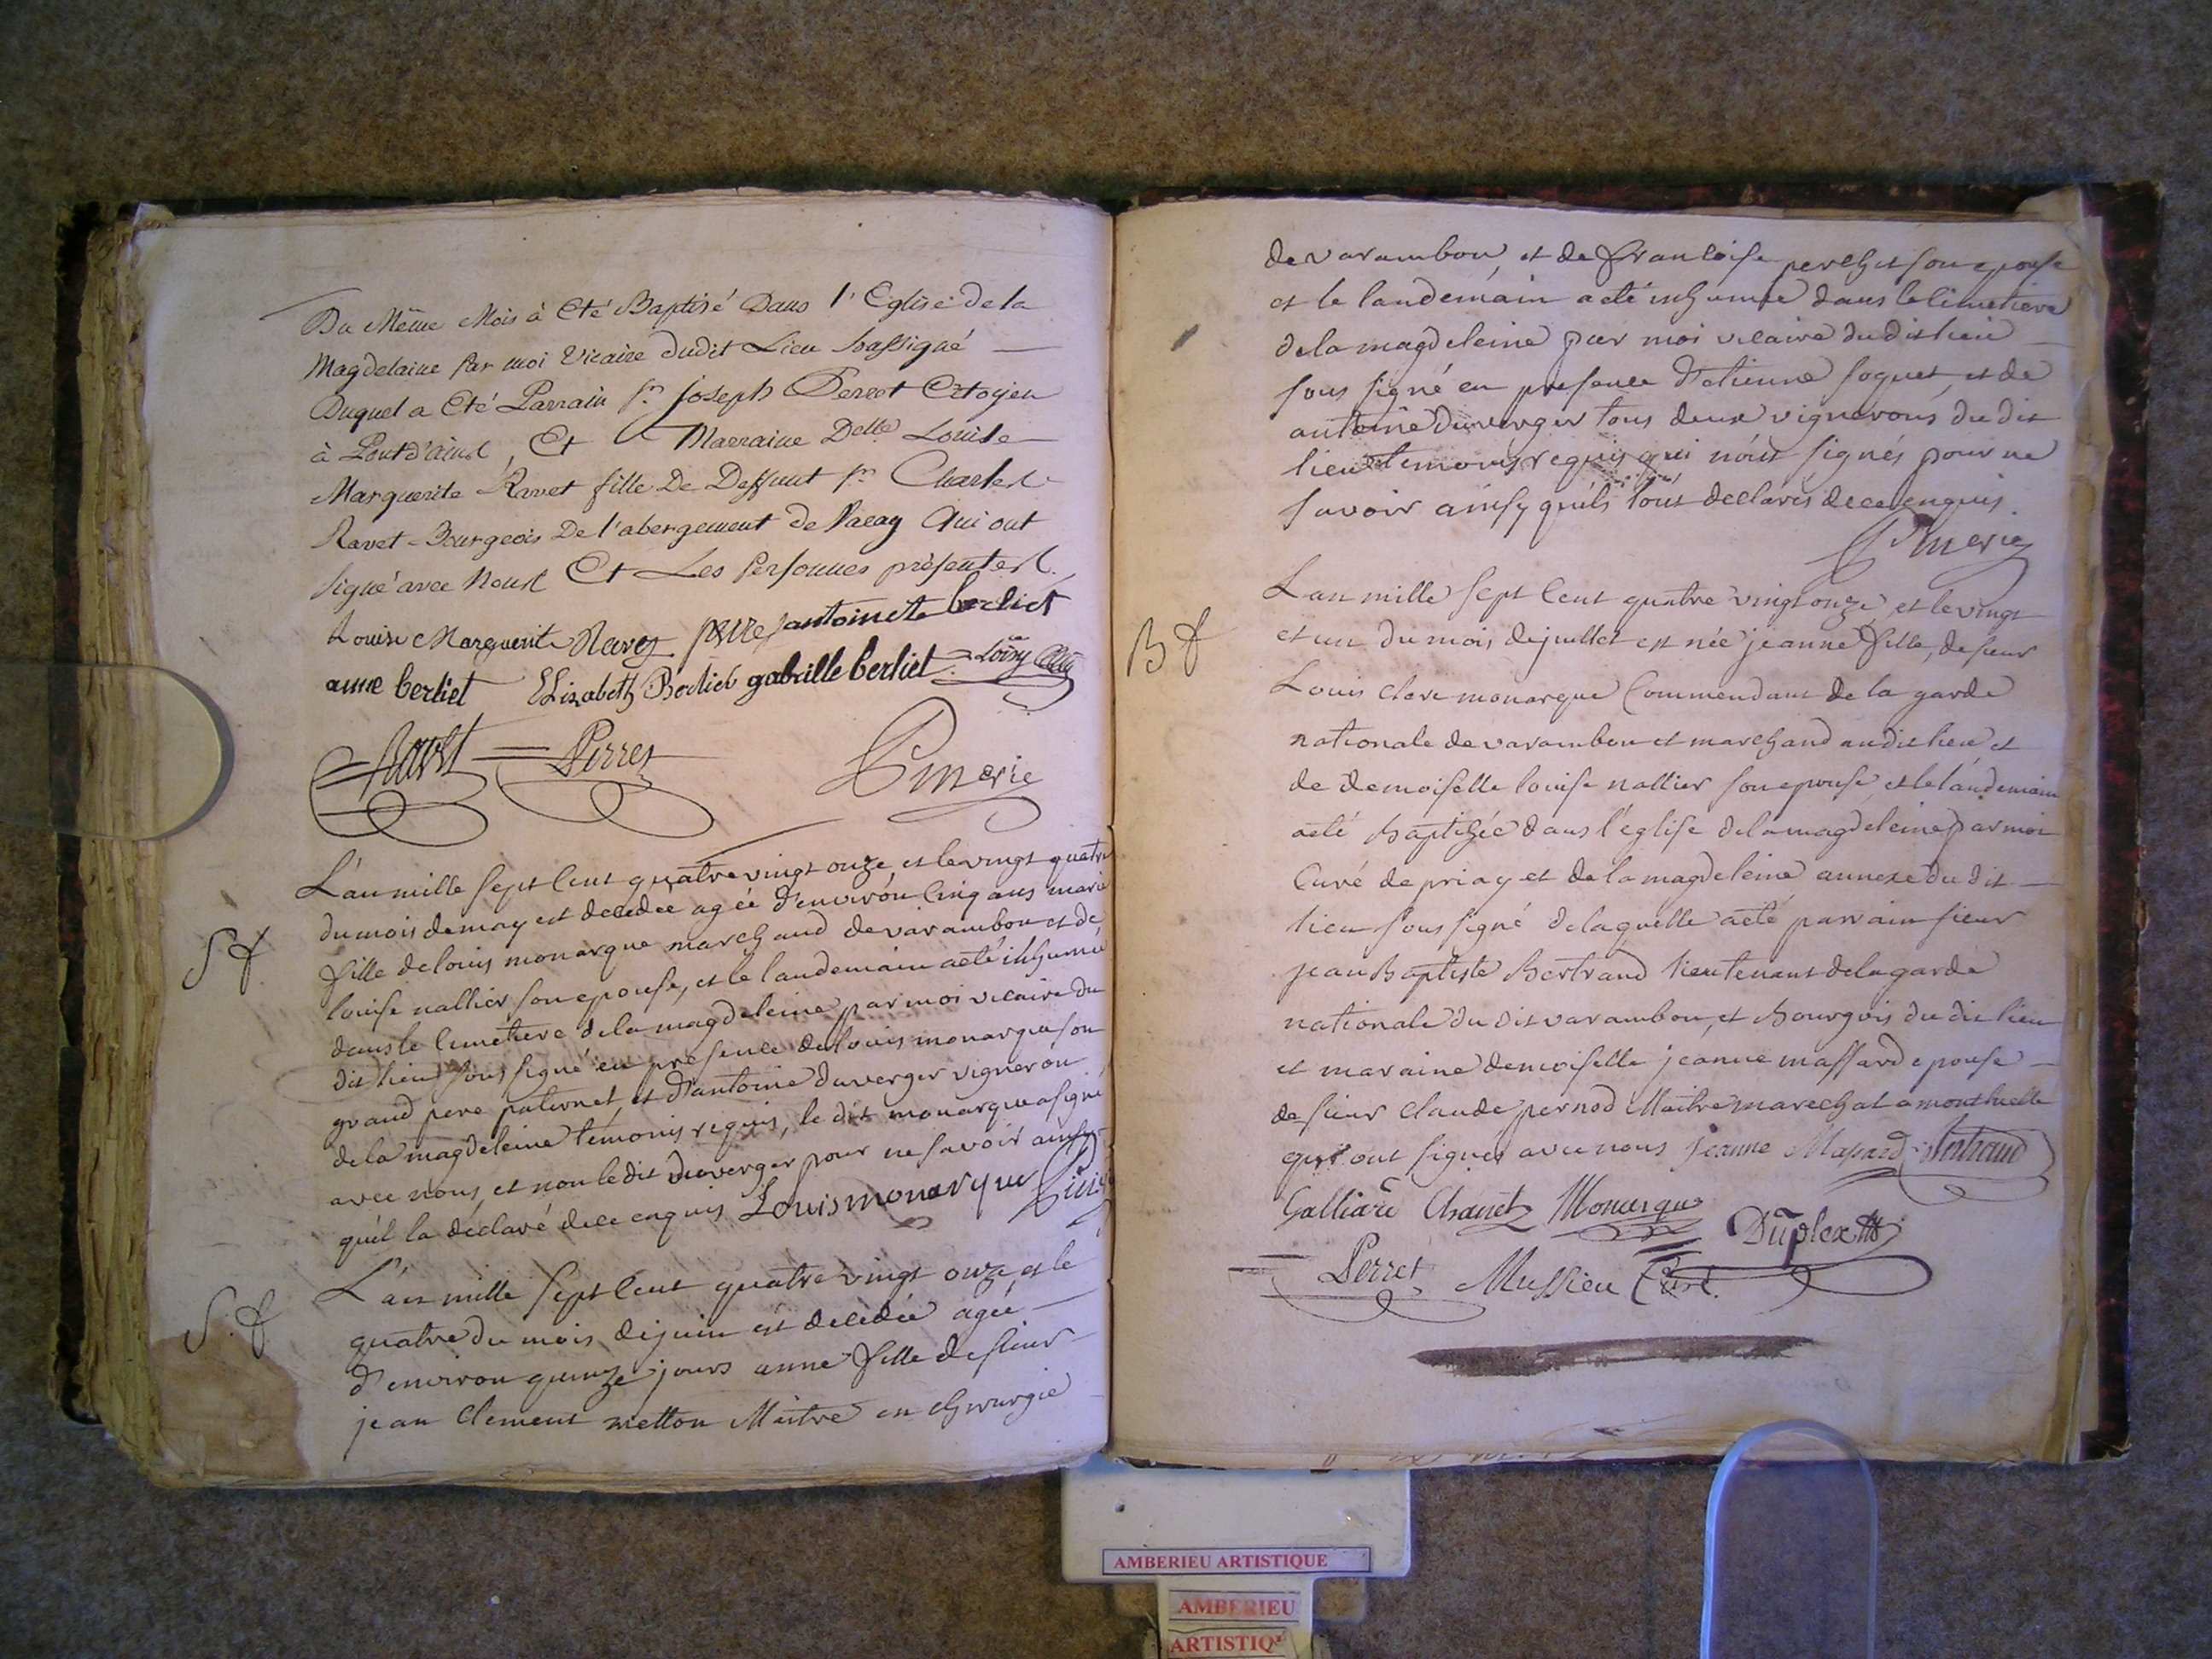 Du Même Mois à Eté Baptisé Dans l'Eglise de la
Magdelaine Par moi Vicaire dudit Lieu Soussigné
Duquel a Eté Parrain Sr. joseph Perret Citoyen
à Pontd'ains, Et Marraine Delle Louise
Marguerite Ravet fille De Deffunt Sr. Charles
Ravet Bourgeois De l'abergement de Varey Qui ont
signé avec Nous Et Les Personnes présentes.
Louise Marguerite Ravet antoinete berliet
anne berliet Elizabeth Berliet gabrille berliet
Ravet Perret Pimerie
L'an mille sept cent quatre vingt onze, et le vingt quatre
du mois de may est decedee agée d'environ cinq ans marie
fille de louis monarque marchand de varambon et de
louise nallier son epouse, et le landemain a eté inhumée
dans le cimetiere de la magdeleine par moi vicaire du
dit lieu sous signé en presence de louis monarque son
grand pere paternel, et d'antoine duverger vigneron
de la magdeleine témoins requis, le dit monarque a signé
avec nous, et non le dit duverger pour ne savoir ainsy
qu'il la déclaré de ce enquis Louis monarque
S f
L'an mille sept cent quatre vingt onze, et le
quatre du mois de juin est decedée agée
d'environ quinze jours anne fille de sieur
jean clement metton Maitre en chirurgie
S. f.
de varambon, et de francoise perchet son epouse
et le landemain a eté inhumée dans le cimetiere
de la magdeleine par moi vicaire du dit lieu
sous signé en presence d'etienne foguet, et de
antoine duverger tous deux vignerons du dit
lieu temoins requis qui n'ont signés pour ne
savoir ainsy qu'ils l'ont declarés de ce enquis.
Pimerie
L'an mille sept cent quatre vingt onze, et le vingt
et un du mois de juillet est née jeanne fille, de sieur
B f
Louis clere monarque Commendant de la garde
nationale de varambon et marchand au dit lieu et
de demoiselle louise nallier son epouse, et le landemain
a eté baptisée dans l'eglise de la magdeleine par moi
Curé de priay et de la magdeleine annexe du dit
lieu sous signé de laquelle a eté parrain sieur
jean Baptiste Bertrand lieutenant de la garde
nationale du dit varambon, et bourgois du dit lieu
et maraine demoiselle jeanne massard epouse
de sieur claude pernod Maitre marechal a montluelle
qui ont signés avec nous Jeanne Masard Bertrand
Galliare Chanet Monarque
Duplex
Perret Mussieu Curé.
AMBERIEU ARTISTIQUE
AMBERIEU
ARTISTIQ